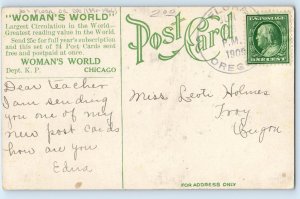 "WOMAN'S WORLD"
Largest Circulation in the World.
Greatest reading value in the World.
Send 25c for full year's subscription
and this set of 24 Post Cards sent
free and postpaid to you.
WOMAN'S WORLD
Dept. K. P. CHICAGO
Post Card
200
1909
OREG
Dear teacher
I am sending
you one of my
new post cards
how are you
Edna
Miss Leoti Holmes
Troy
Oregon
FOR ADDRESS ONLY